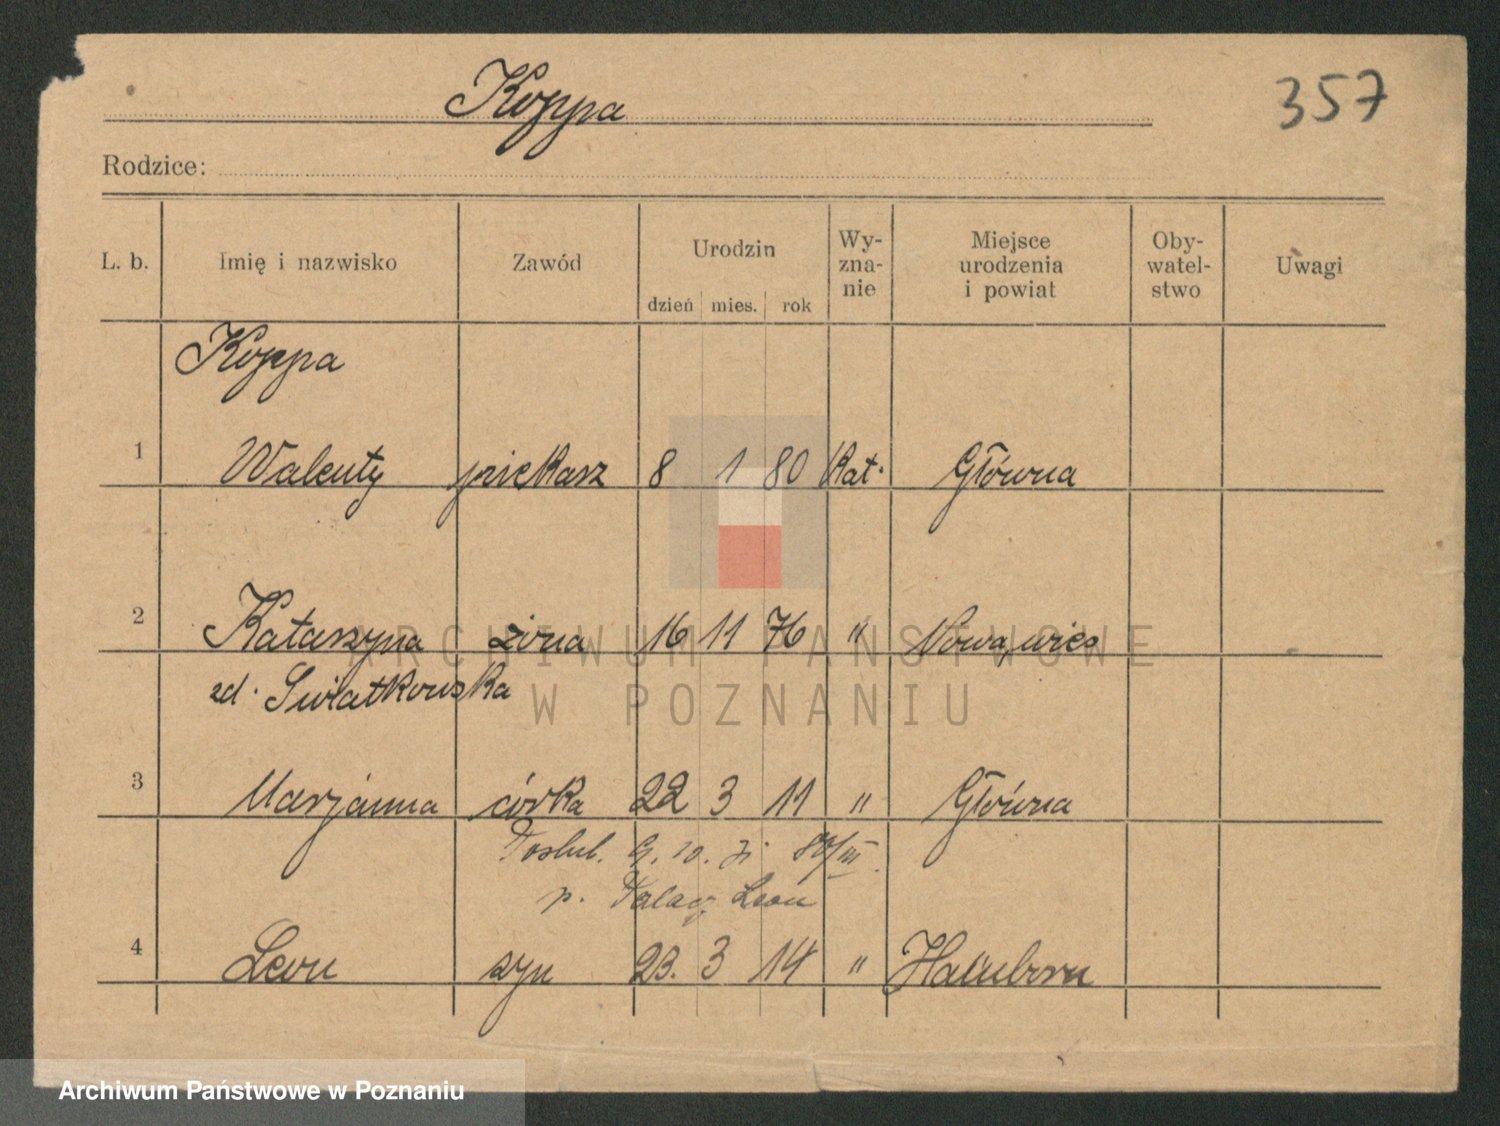 Koppa
357
Rodzice:
L. b. Imię i nazwisko Zawód Urodzin dzień mies. rok Wy-zna-nie Miejsce urodzenia i powiat Oby-watel-stwo Uwagi
Koppa
1 Walenty piekarz 8 1 80 kat. Główna
2 Katarzyna żona 16 11 76 " Nowawieś
zd. Swiatkowska
3 Marjanna córka 22 3 11 " Główna
Poślub. 9. 10.
p. Leon
4 Leon syn 23. 3 14 "
ARCHIWUM PAŃSTWOWE
W POZNANIU
Archiwum Państwowe w Poznaniu